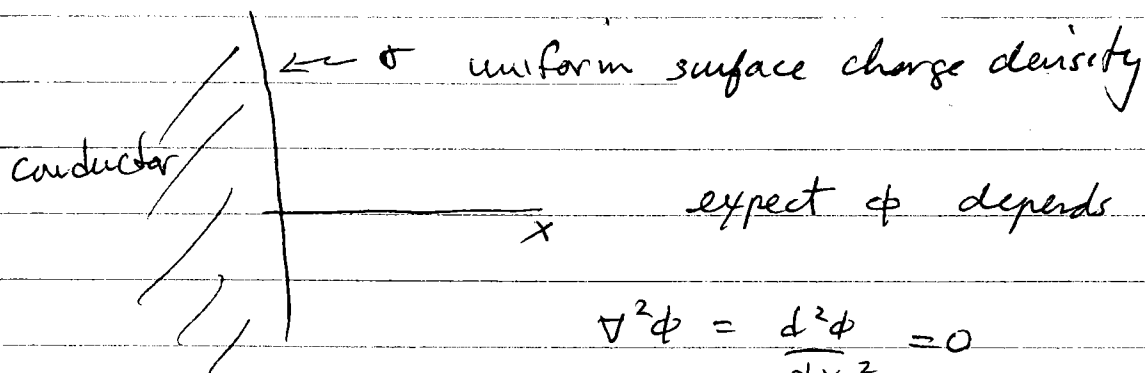 ← σ uniform surface charge density
conductor
expect ϕ depends
x
∇²ϕ = d²ϕ/dx² = 0